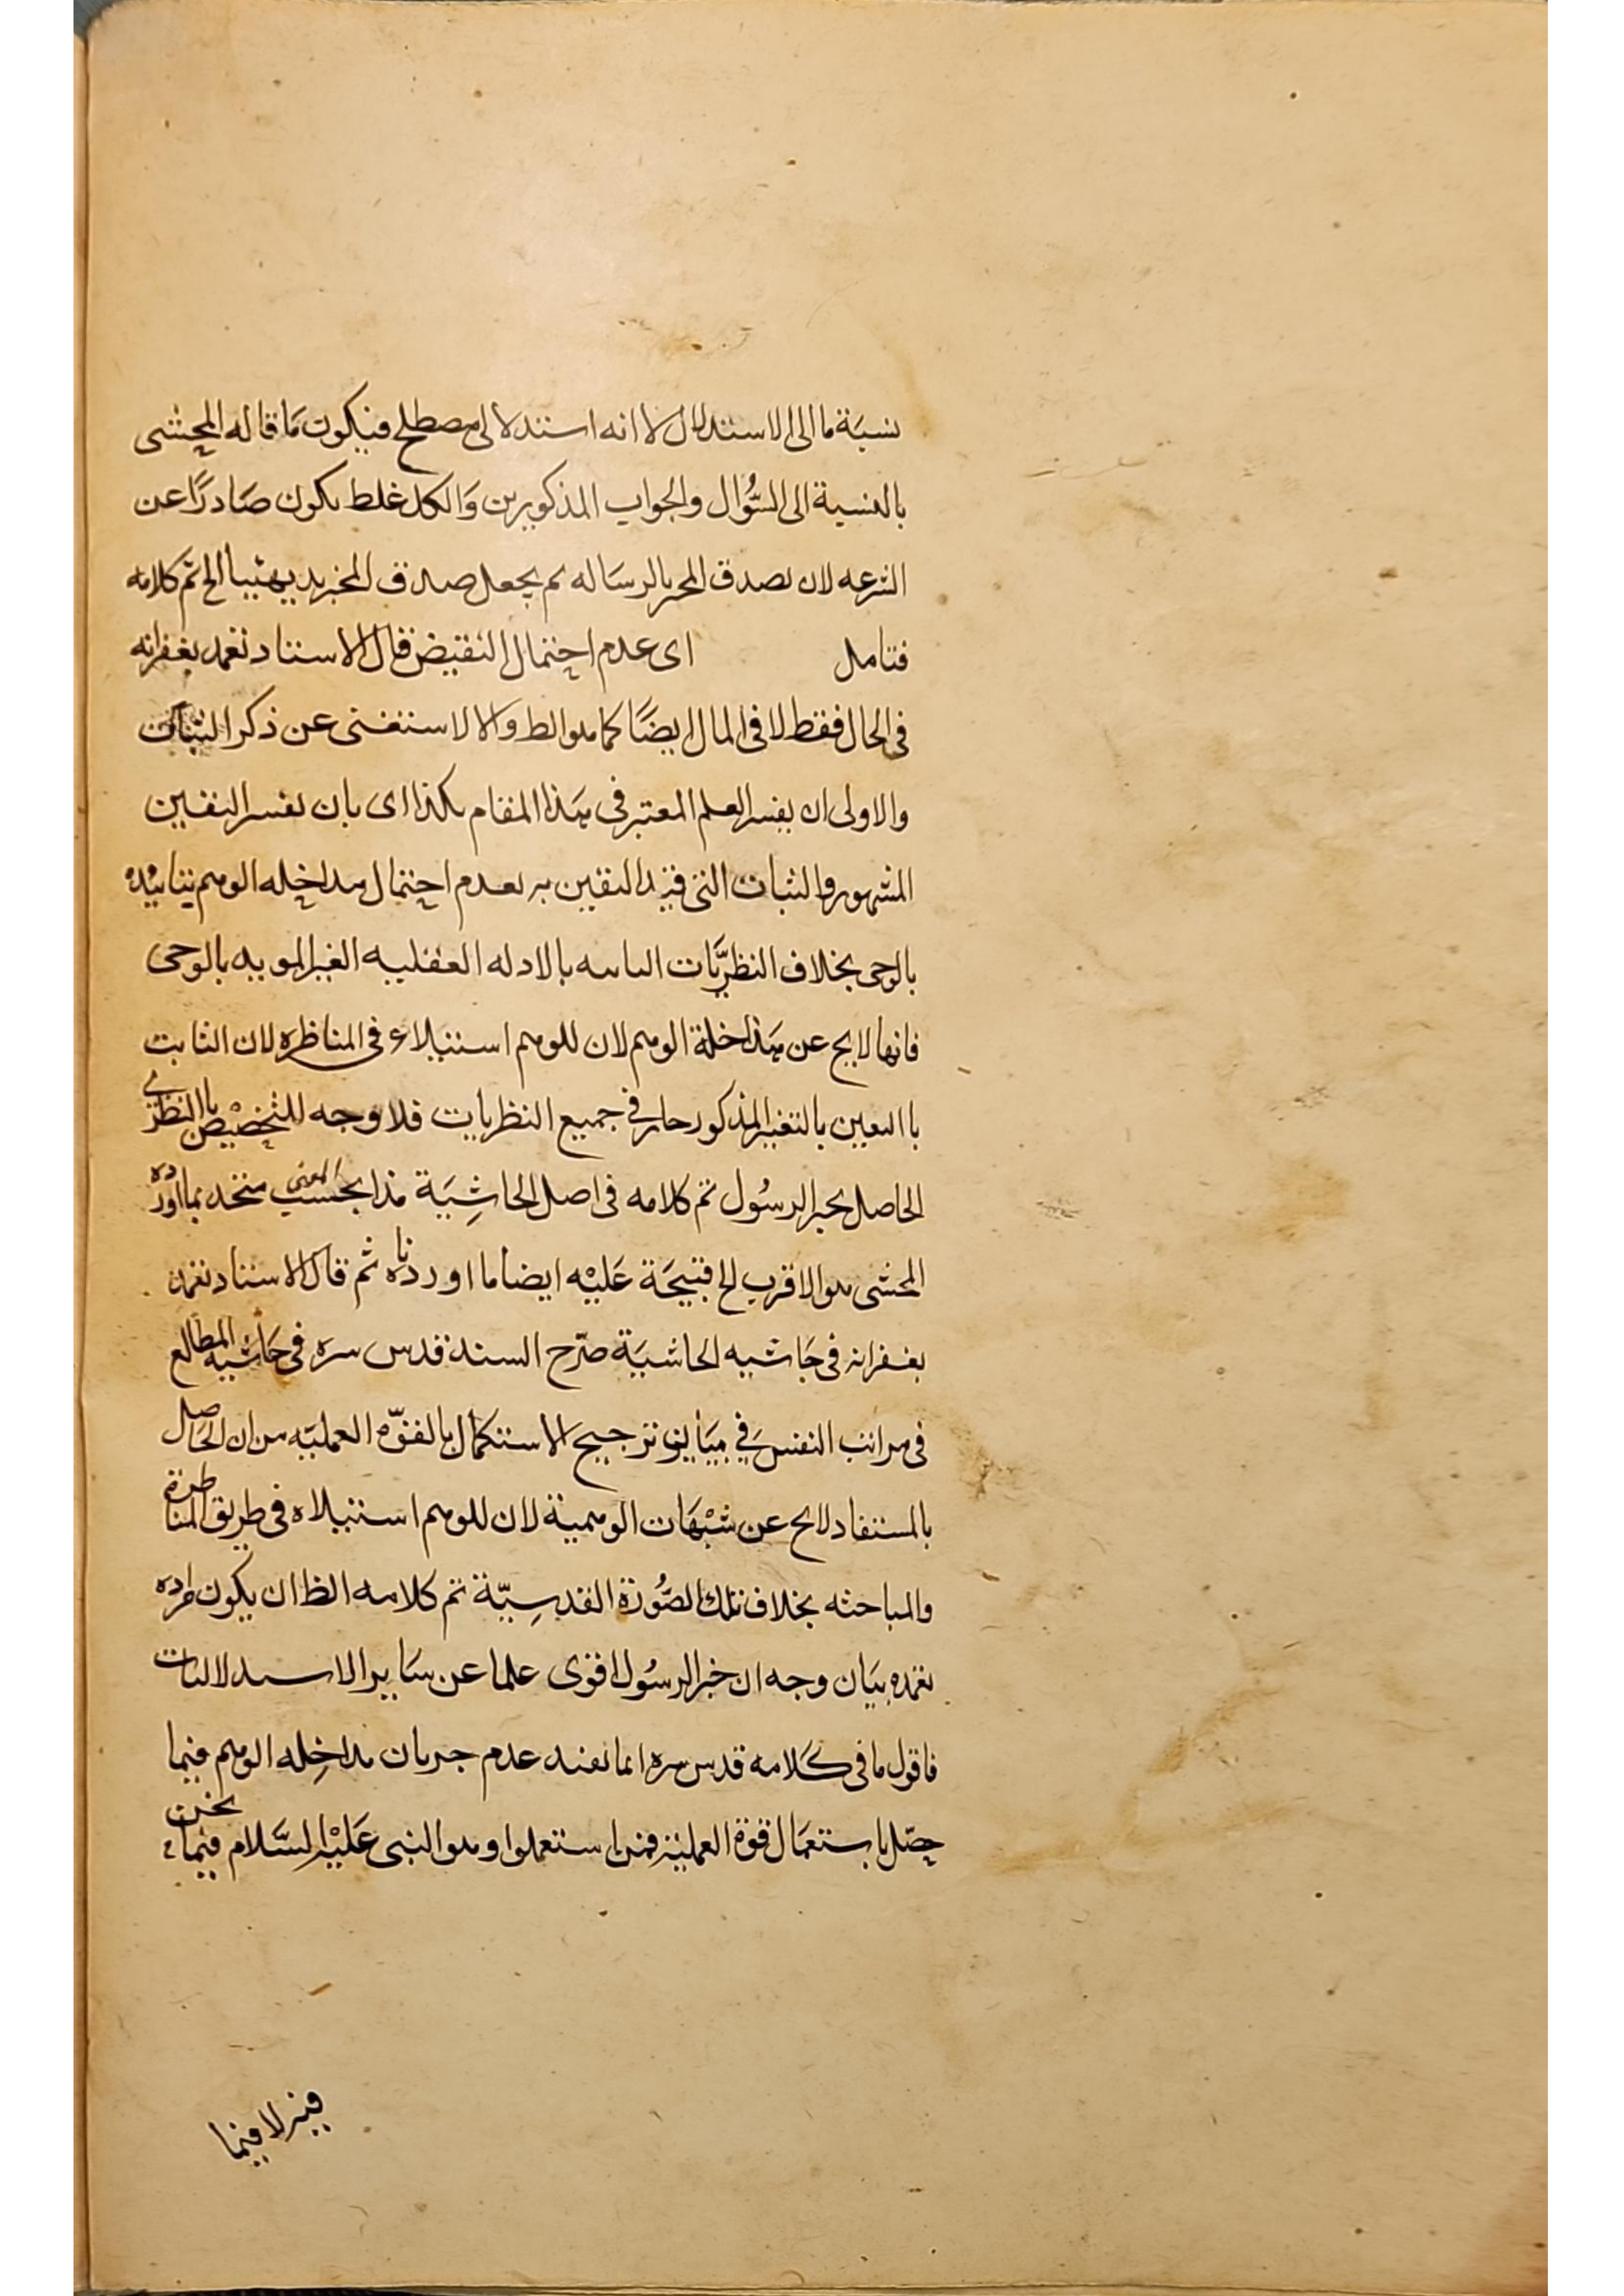 نسبَة ما الى الاستدلال لا انه استدلالى مصطلح فيكون مَا قاله المحشى
بالنسبة الى السُّوال والجواب المذكورين وَالكل غلط يكون صَادرًا عن
الشرعه لان تصدق المخبر بالرسَاله لم يجعل صدق المخبر بديهيا الخ تم كلامه
فتامل اى عدم احتمال النقيض قال الاستاد تغمد بغفرانه
فى الحال فقط لا فى المال ايضًا كما هو الظ والا لاستغنى عن ذكر الثبات
والاولى ان يفسر العلم المعتبر فى هَذا المقام هكذا اى بان يفسر اليقين
المشهور والثبات التى قيد اليقين به بعدم احتمال مداخله الوهم بتاييْده
بالوحى بخلاف النظريَّات الثابته بالادله العقليه الغير المويده بالوحى
فانها لا يخ عن مداخلة الوهم لان للوهم استيلاء فى المناظره لان الثابت
با اليقين بالتغيير المذكور جار فى جميع النظريات فلا وجه للتخصِيْص با النظرى
الحاصل بخبر الرسُول تم كلامه فى اصل الحاشِيَة هذا بحسب المعنى متحد بما اورده
المحشى هو الاقرب الخ فيتجَه عَليْه ايضا ما اوردناه ثم قال الاستاد تغمد
بغفرانه فى حَاشيه الحاشيَة صَرّح السند قدس سره فى حَاشيه المطالع
فى مراتب النفسَ فِي بيَان ترجيح الاستكمال بالقوّه العمليّه من ان الحَاصل
بالمستفاد لا يخ عن شبْهَات الوهمية لان للوهم استيلاه فى طريق المناظرة
والمباحثه بخلاف تلك الصُّورَة القدسِيّة تم كلامه الظ ان يكون مراده
تغمده بيَان وجه ان خبر الرسُول اقوى علما عن سَاير الاستدلاليات
فاقول ما فى كَلامه قدس سره انما تفيد عدم جريان مداخِله الوهم فيما
حصّل باستعمَال قوة العمليّة فمن استعملوا وهو النبى عَليْه السَّلام فيما نحن
فيه لا فيما